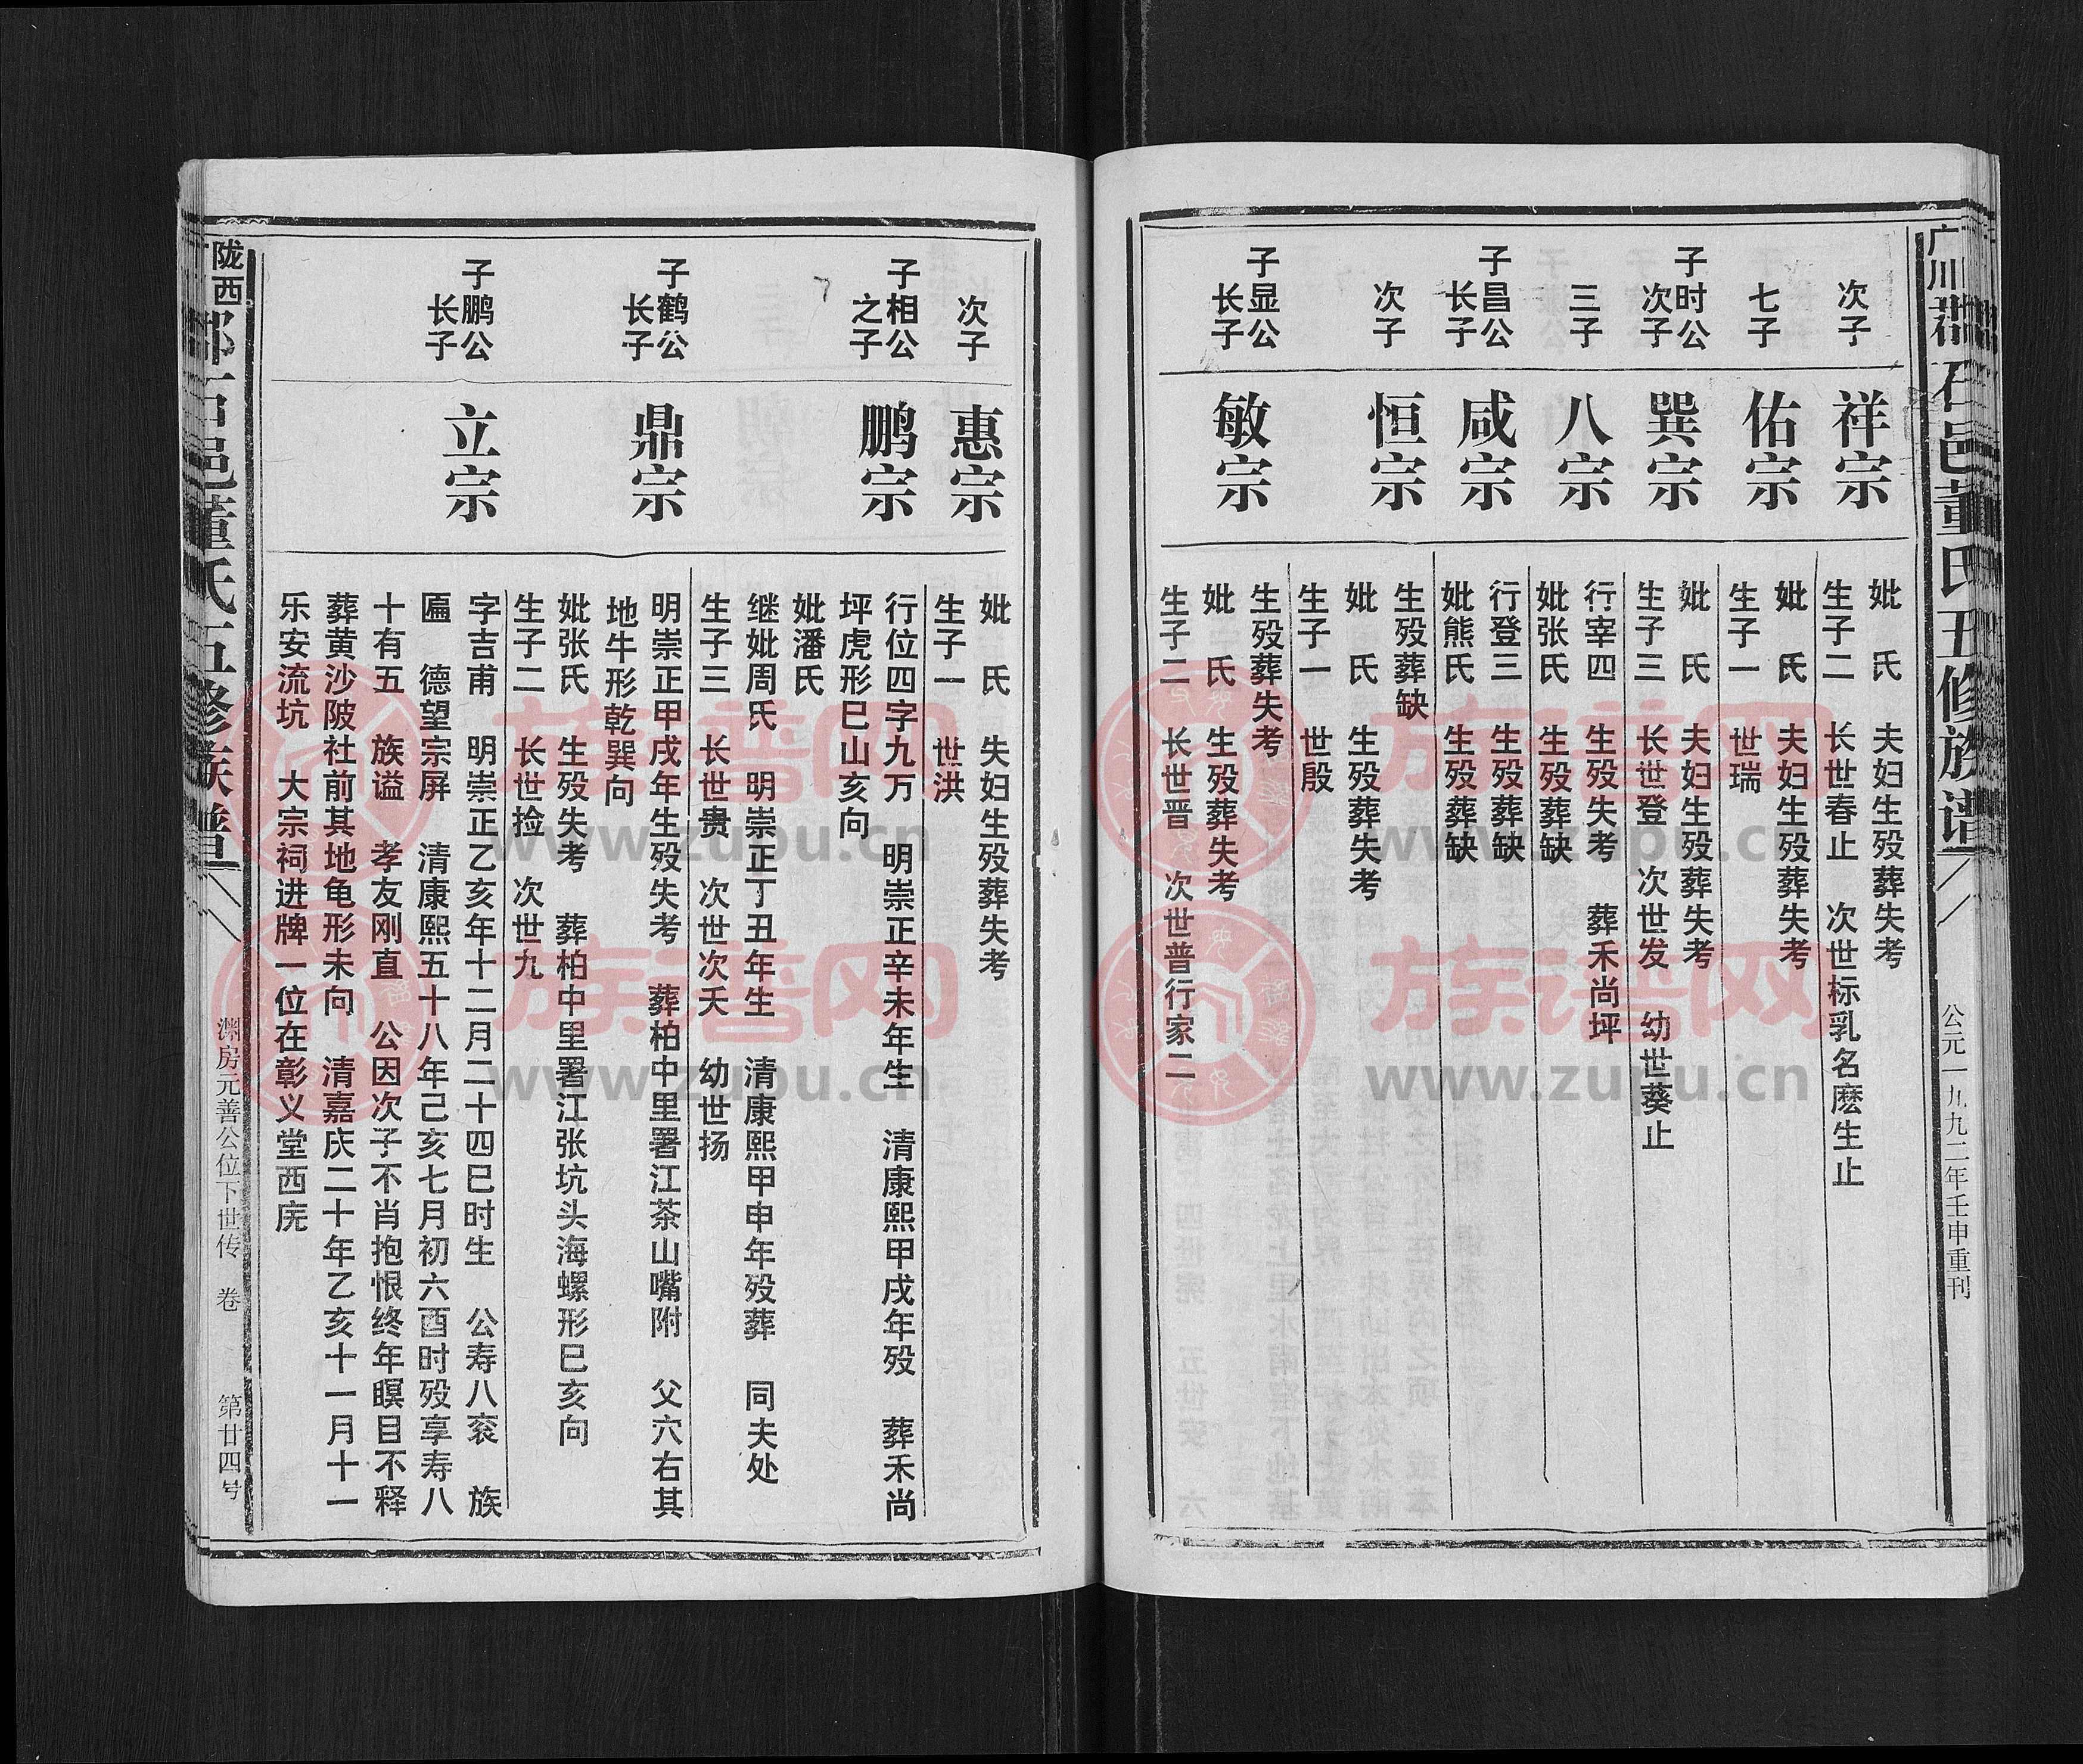 广川郡石邑董氏五修族谱
公元一九九二年壬申重刊
次子
祥宗
妣 氏 夫妇生殁葬失考
生子二 长世春止 次世标乳名麽生止
七子
佑宗
妣 氏 夫妇生殁葬失考
生子一 世瑞
子时公
次子
巽宗
妣 氏 夫妇生殁葬失考
生子三 长世登 次世发 幼世葵止
三子
八宗
行宰四 生殁失考 葬禾尚坪
妣张氏 生殁葬缺
子昌公
长子
咸宗
行登三 生殁葬缺
妣熊氏 生殁葬缺
次子
恒宗
生殁葬缺
妣 氏 生殁葬失考
生子一 世殷
子显公
长子
敏宗
生殁葬失考
妣 氏 生殁葬失考
生子二 长世晋 次世普行家二
次子
惠宗
妣 氏 失妇生殁葬失考
生子一 世洪
子相公
之子
鹏宗
行位四字九万 明崇正辛未年生 清康熙甲戌年殁 葬禾尚
坪虎形巳山亥向
妣潘氏
继妣周氏 明崇正丁丑年生 清康熙甲申年殁葬 同夫处
生子三 长世贵 次世次夭 幼世扬
子鹤公
长子
鼎宗
明崇正甲戌年生殁失考 葬柏中里署江茶山嘴附 父穴右其
地牛形乾巽向
妣张氏 生殁失考 葬柏中里署江张坑头海螺形巳亥向
生子二 长世捡 次世九
子鹏公
长子
立宗
字吉甫 明崇正乙亥年十二月二十四巳时生 公寿八衮 族
匾 德望宗屏 清康熙五十八年己亥七月初六酉时殁享寿八
十有五 族谥 孝友刚直 公因次子不肖抱恨终年瞑目不释
葬黄沙陂社前其地龟形未向 清嘉庆二十年乙亥十一月十一
乐安流坑 大宗祠进牌一位在彰义堂西庑
陇西郡石邑董氏五修族谱
渊房元善公位下世传 卷 第廿四号
族谱网
www.zupu.cn
族谱网
www.zupu.cn
族谱网
www.zupu.cn
族谱网
www.zupu.cn